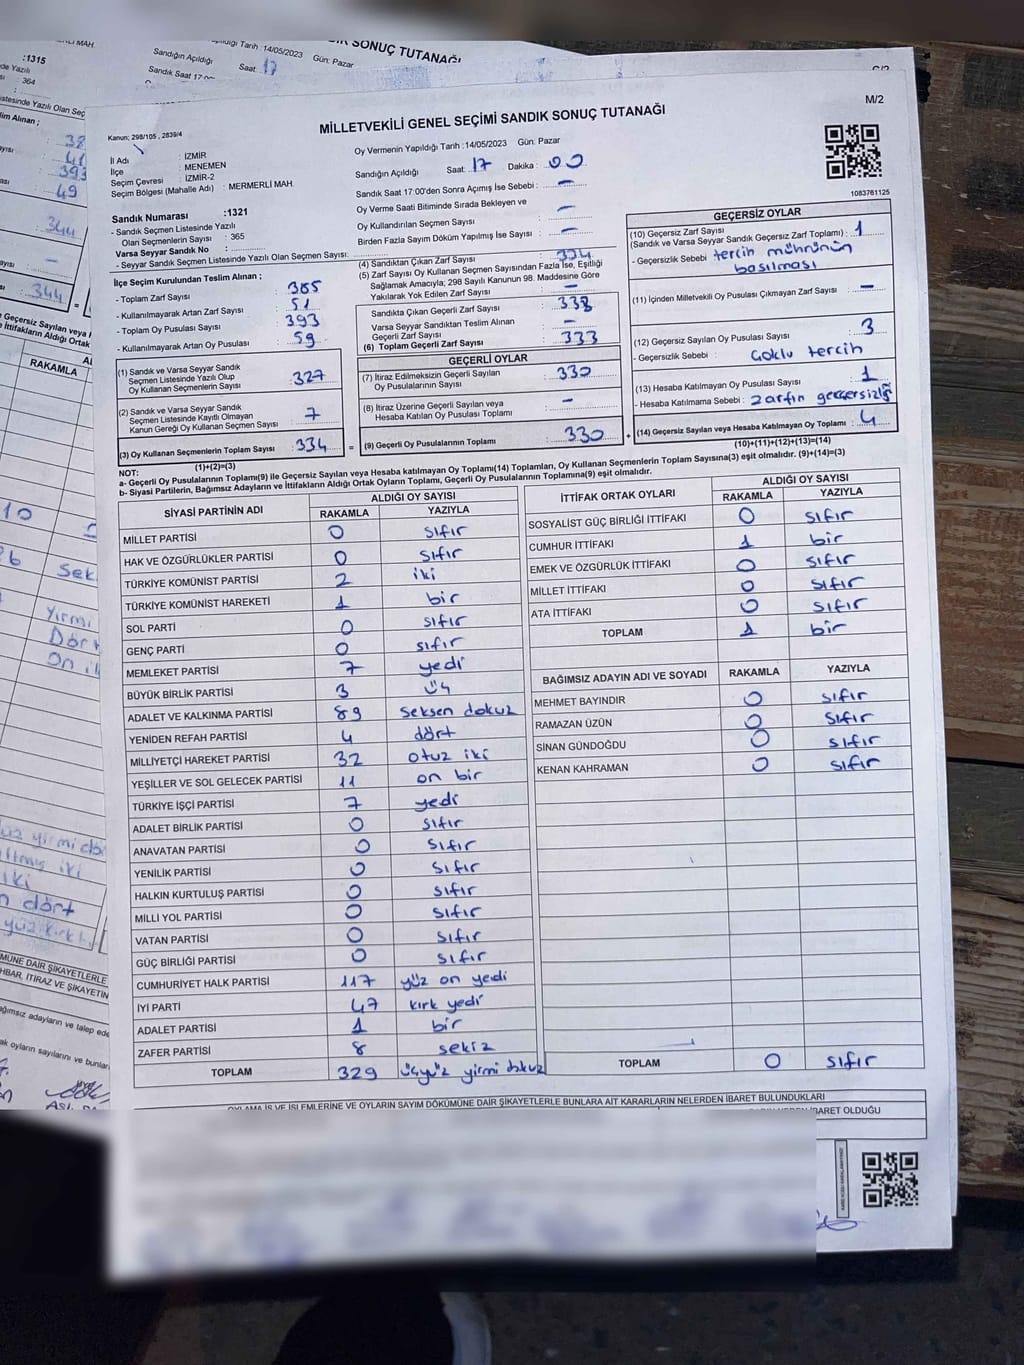 :1315
364
38
41
393
49
344
344
SONUÇ TUTANAĞI
Tarih :14/05/2023 Gün: Pazar
Sandığın Açıldığı Saat: 17
M/2
MİLLETVEKİLİ GENEL SEÇİMİ SANDIK SONUÇ TUTANAĞI
Kanun; 298/105 , 2839/4
İl Adı : İZMİR
İlçe : MENEMEN
Seçim Çevresi : İZMİR-2
Seçim Bölgesi (Mahalle Adı) : MERMERLİ MAH.
Oy Vermenin Yapıldığı Tarih :14/05/2023 Gün: Pazar
Sandığın Açıldığı Saat: 17 Dakika : 00
Sandık Saat 17:00'den Sonra Açımış İse Sebebi : —
Oy Verme Saati Bitiminde Sırada Bekleyen ve
Oy Kullandırılan Seçmen Sayısı —
Birden Fazla Sayım Döküm Yapılmış İse Sayısı —
1083761125
Sandık Numarası :1321
- Sandık Seçmen Listesinde Yazılı
Olan Seçmenlerin Sayısı : 365
Varsa Seyyar Sandık No :
- Seyyar Sandık Seçmen Listesinde Yazılı Olan Seçmen Sayısı:
İlçe Seçim Kurulundan Teslim Alınan ;
- Toplam Zarf Sayısı : 385
- Kullanılmayarak Artan Zarf Sayısı : 51
- Toplam Oy Pusulası Sayısı : 393
- Kullanılmayarak Artan Oy Pusulası : 59
(1) Sandık ve Varsa Seyyar Sandık
Seçmen Listesinde Yazılı Olup
Oy Kullanan Seçmenlerin Sayısı : 327
(2) Sandık ve Varsa Seyyar Sandık
Seçmen Listesinde Kayıtlı Olmayan
Kanun Gereği Oy Kullanan Seçmen Sayısı : 7
(3) Oy Kullanan Seçmenlerin Toplam Sayısı : 334
(1)+(2)=(3)
(4) Sandıktan Çıkan Zarf Sayısı : 334
(5) Zarf Sayısı Oy Kullanan Seçmen Sayısından Fazla İse, Eşitliği
Sağlamak Amacıyla; 298 Sayılı Kanunun 98. Maddesine Göre
Yakılarak Yok Edilen Zarf Sayısı : —
Sandıkta Çıkan Geçerli Zarf Sayısı : 333
Varsa Seyyar Sandıktan Teslim Alınan
Geçerli Zarf Sayısı : —
(6) Toplam Geçerli Zarf Sayısı : 333
GEÇERLİ OYLAR
(7) İtiraz Edilmeksizin Geçerli Sayılan
Oy Pusulalarının Sayısı : 330
(8) İtiraz Üzerine Geçerli Sayılan veya
Hesaba Katılan Oy Pusulası Toplamı : —
= (9) Geçerli Oy Pusulalarının Toplamı : 330
GEÇERSİZ OYLAR
(10) Geçersiz Zarf Sayısı
(Sandık ve Varsa Seyyar Sandık Geçersiz Zarf Toplamı) : 1
- Geçersizlik Sebebi : tercih mührünün
basılması
(11) İçinden Milletvekili Oy Pusulası Çıkmayan Zarf Sayısı : —
(12) Geçersiz Sayılan Oy Pusulası Sayısı : 3
- Geçersizlik Sebebi : Çoklu tercih
(13) Hesaba Katılmayan Oy Pusulası Sayısı : 1
- Hesaba Katılmama Sebebi : zarfın geçersizliği
+ (14) Geçersiz Sayılan veya Hesaba Katılmayan Oy Toplamı : 4
(10)+(11)+(12)+(13)=(14)
NOT:
a- Geçerli Oy Pusulalarının Toplamı(9) ile Geçersiz Sayılan veya Hesaba katılmayan Oy Toplamı(14) Toplamları, Oy Kullanan Seçmenlerin Toplam Sayısına(3) eşit olmalıdır. (9)+(14)=(3)
b- Siyasi Partilerin, Bağımsız Adayların ve İttifakların Aldığı Ortak Oyların Toplamı, Geçerli Oy Pusulalarının Toplamına(9) eşit olmalıdır.
SİYASİ PARTİNİN ADI ALDIĞI OY SAYISI
RAKAMLA YAZIYLA
MİLLET PARTİSİ 0 sıfır
HAK VE ÖZGÜRLÜKLER PARTİSİ 0 sıfır
TÜRKİYE KOMÜNİST PARTİSİ 2 iki
TÜRKİYE KOMÜNİST HAREKETİ 1 bir
SOL PARTİ 0 sıfır
GENÇ PARTİ 0 sıfır
MEMLEKET PARTİSİ 7 yedi
BÜYÜK BİRLİK PARTİSİ 3 üç
ADALET VE KALKINMA PARTİSİ 89 seksen dokuz
YENİDEN REFAH PARTİSİ 4 dört
MİLLİYETÇİ HAREKET PARTİSİ 32 otuz iki
YEŞİLLER VE SOL GELECEK PARTİSİ 11 on bir
TÜRKİYE İŞÇİ PARTİSİ 7 yedi
ADALET BİRLİK PARTİSİ 0 sıfır
ANAVATAN PARTİSİ 0 sıfır
YENİLİK PARTİSİ 0 sıfır
HALKIN KURTULUŞ PARTİSİ 0 sıfır
MİLLİ YOL PARTİSİ 0 sıfır
VATAN PARTİSİ 0 sıfır
GÜÇ BİRLİĞİ PARTİSİ 0 sıfır
CUMHURİYET HALK PARTİSİ 117 yüz on yedi
İYİ PARTİ 47 kırk yedi
ADALET PARTİSİ 1 bir
ZAFER PARTİSİ 8 sekiz
TOPLAM 329 üçyüz yirmi dokuz
İTTİFAK ORTAK OYLARI ALDIĞI OY SAYISI
RAKAMLA YAZIYLA
SOSYALİST GÜÇ BİRLİĞİ İTTİFAKI 0 sıfır
CUMHUR İTTİFAKI 1 bir
EMEK VE ÖZGÜRLÜK İTTİFAKI 0 sıfır
MİLLET İTTİFAKI 0 sıfır
ATA İTTİFAKI 0 sıfır
TOPLAM 1 bir
BAĞIMSIZ ADAYIN ADI VE SOYADI RAKAMLA YAZIYLA
MEHMET BAYINDIR 0 sıfır
RAMAZAN ÜZÜN 0 sıfır
SİNAN GÜNDOĞDU 0 sıfır
KENAN KAHRAMAN 0 sıfır
TOPLAM 0 sıfır
OYLAMA İŞ VE İŞLEMLERİNE VE OYLARIN SAYIM DÖKÜMÜNE DAİR ŞİKAYETLERLE BUNLARA AİT KARARLARIN NELERDEN İBARET BULUNDUKLARI
İBARET OLDUĞU